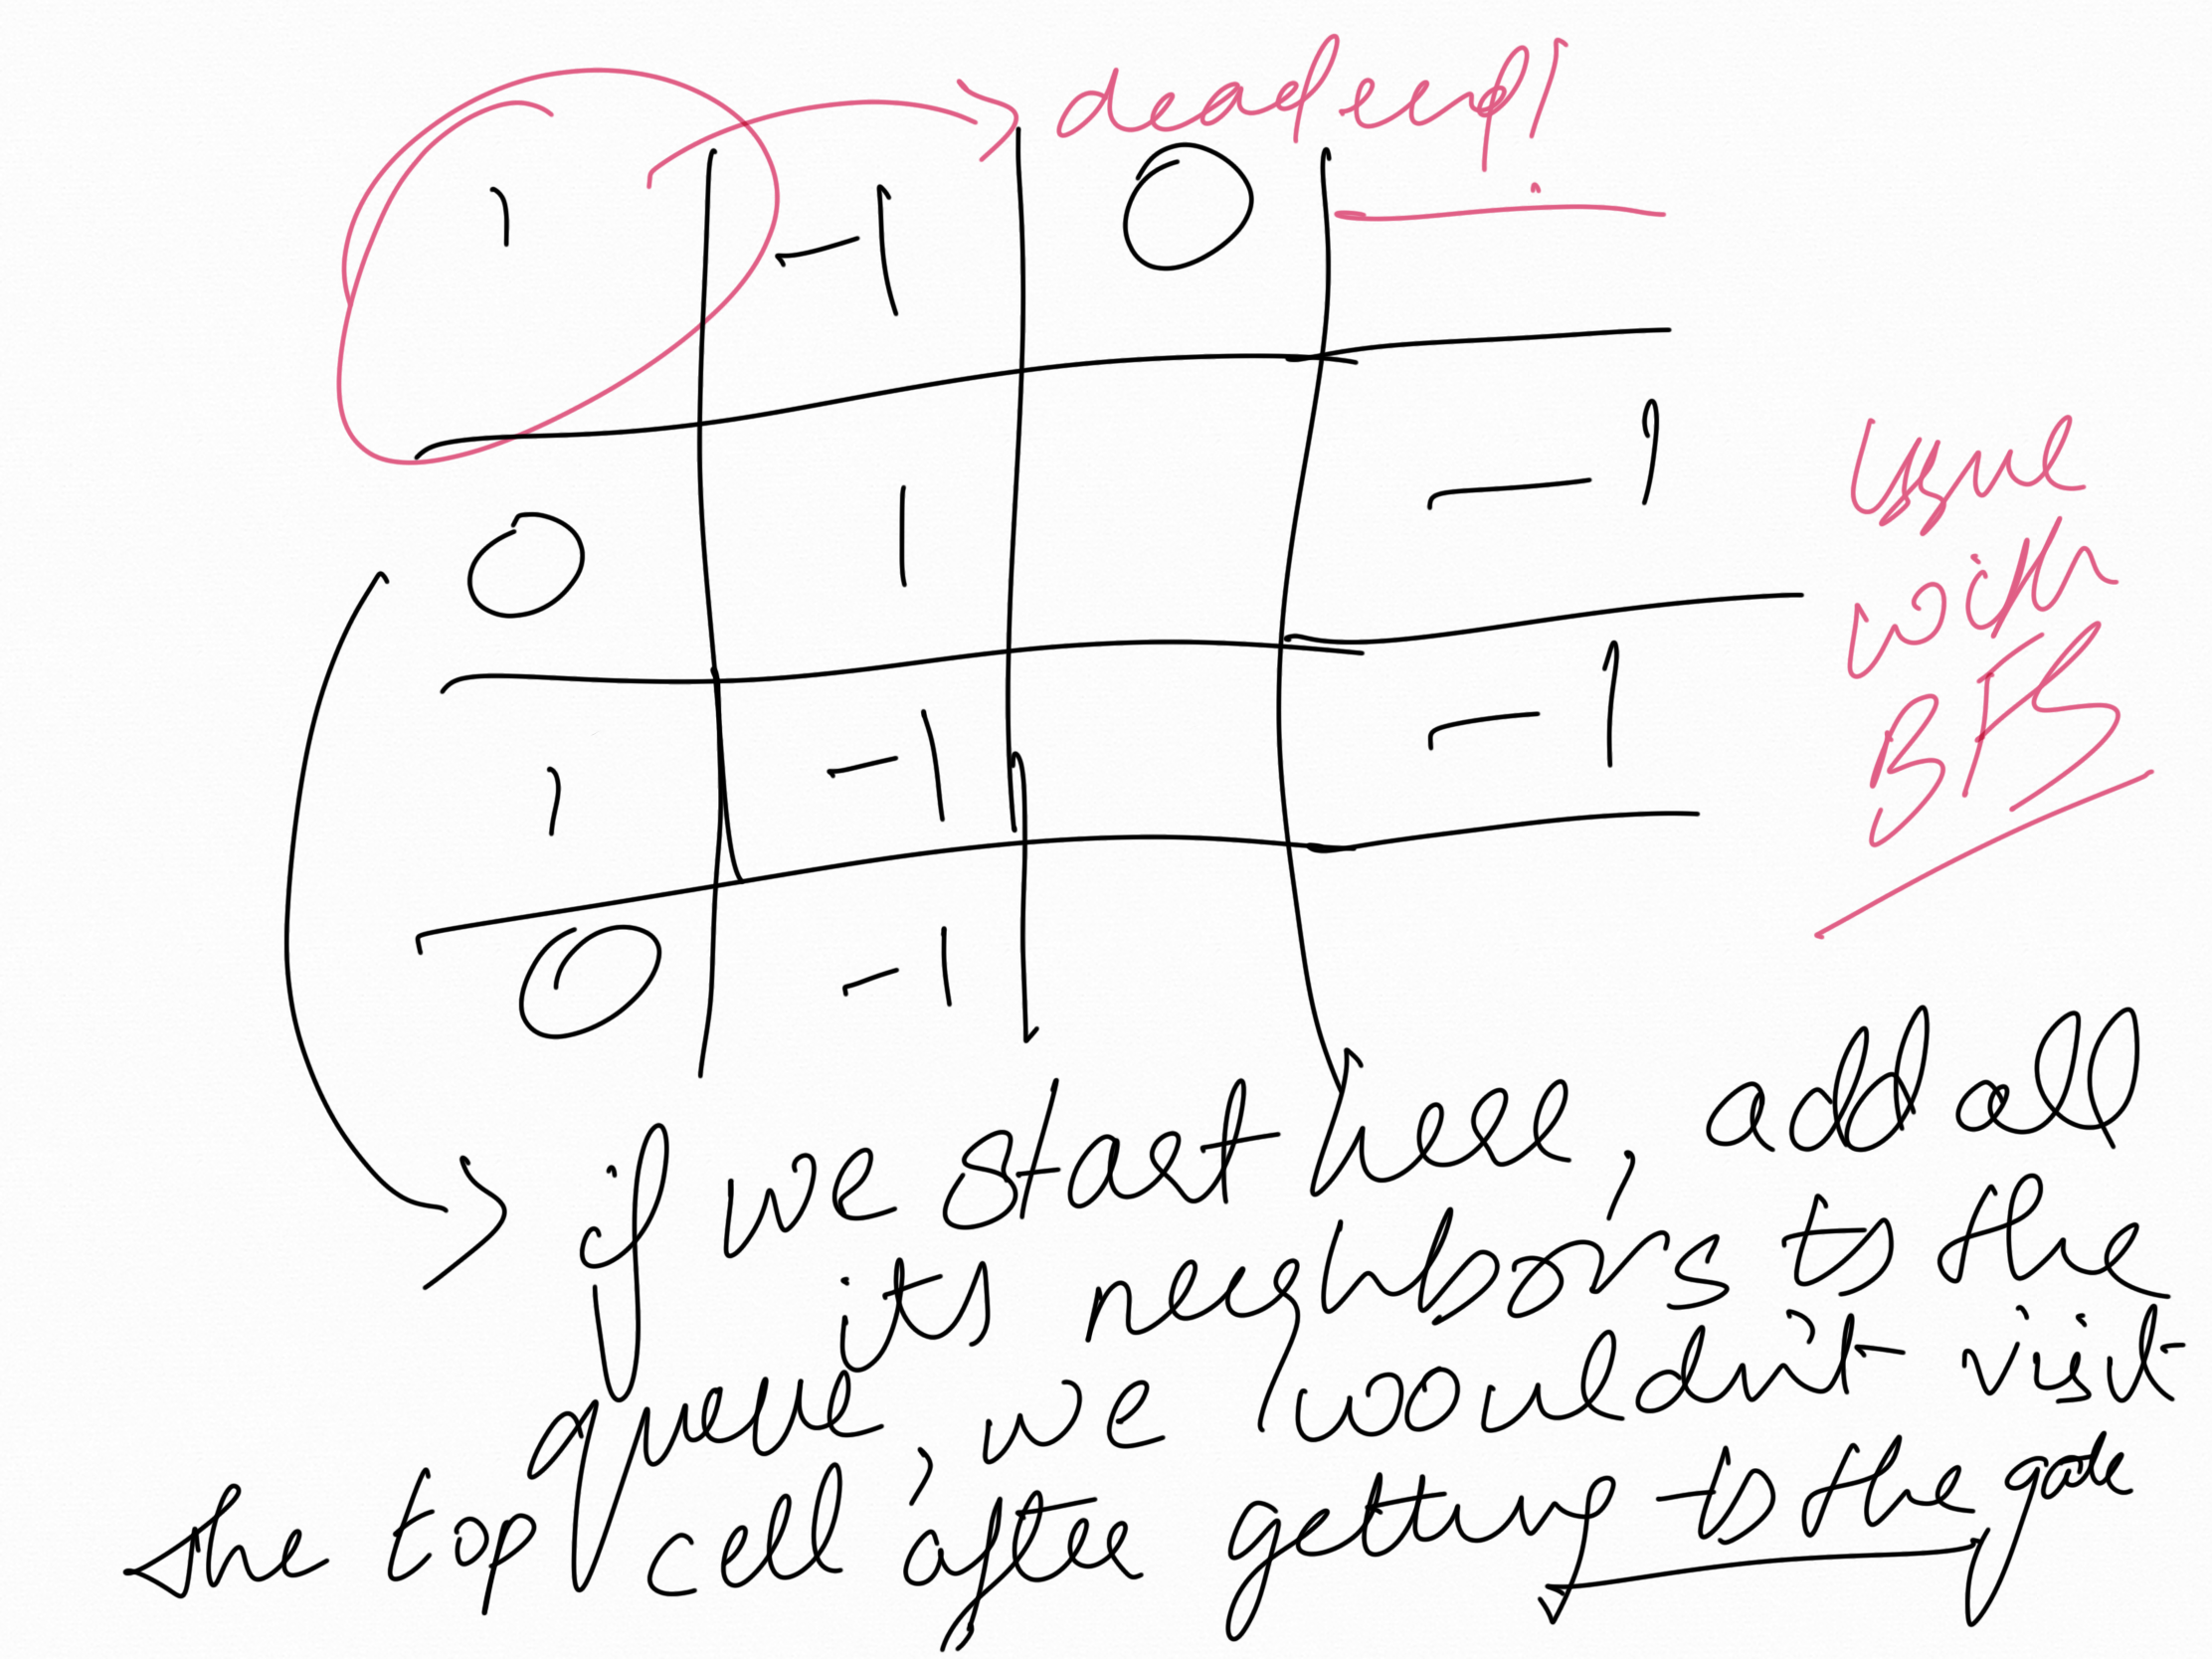 dead end!
1 -1 0
0 1 -1
1 -1 -1
0 -1
Issue
with
BFS
if we start here, add all
its neighbors to the
queue, we wouldn't visit
the top cell after getting to the gate